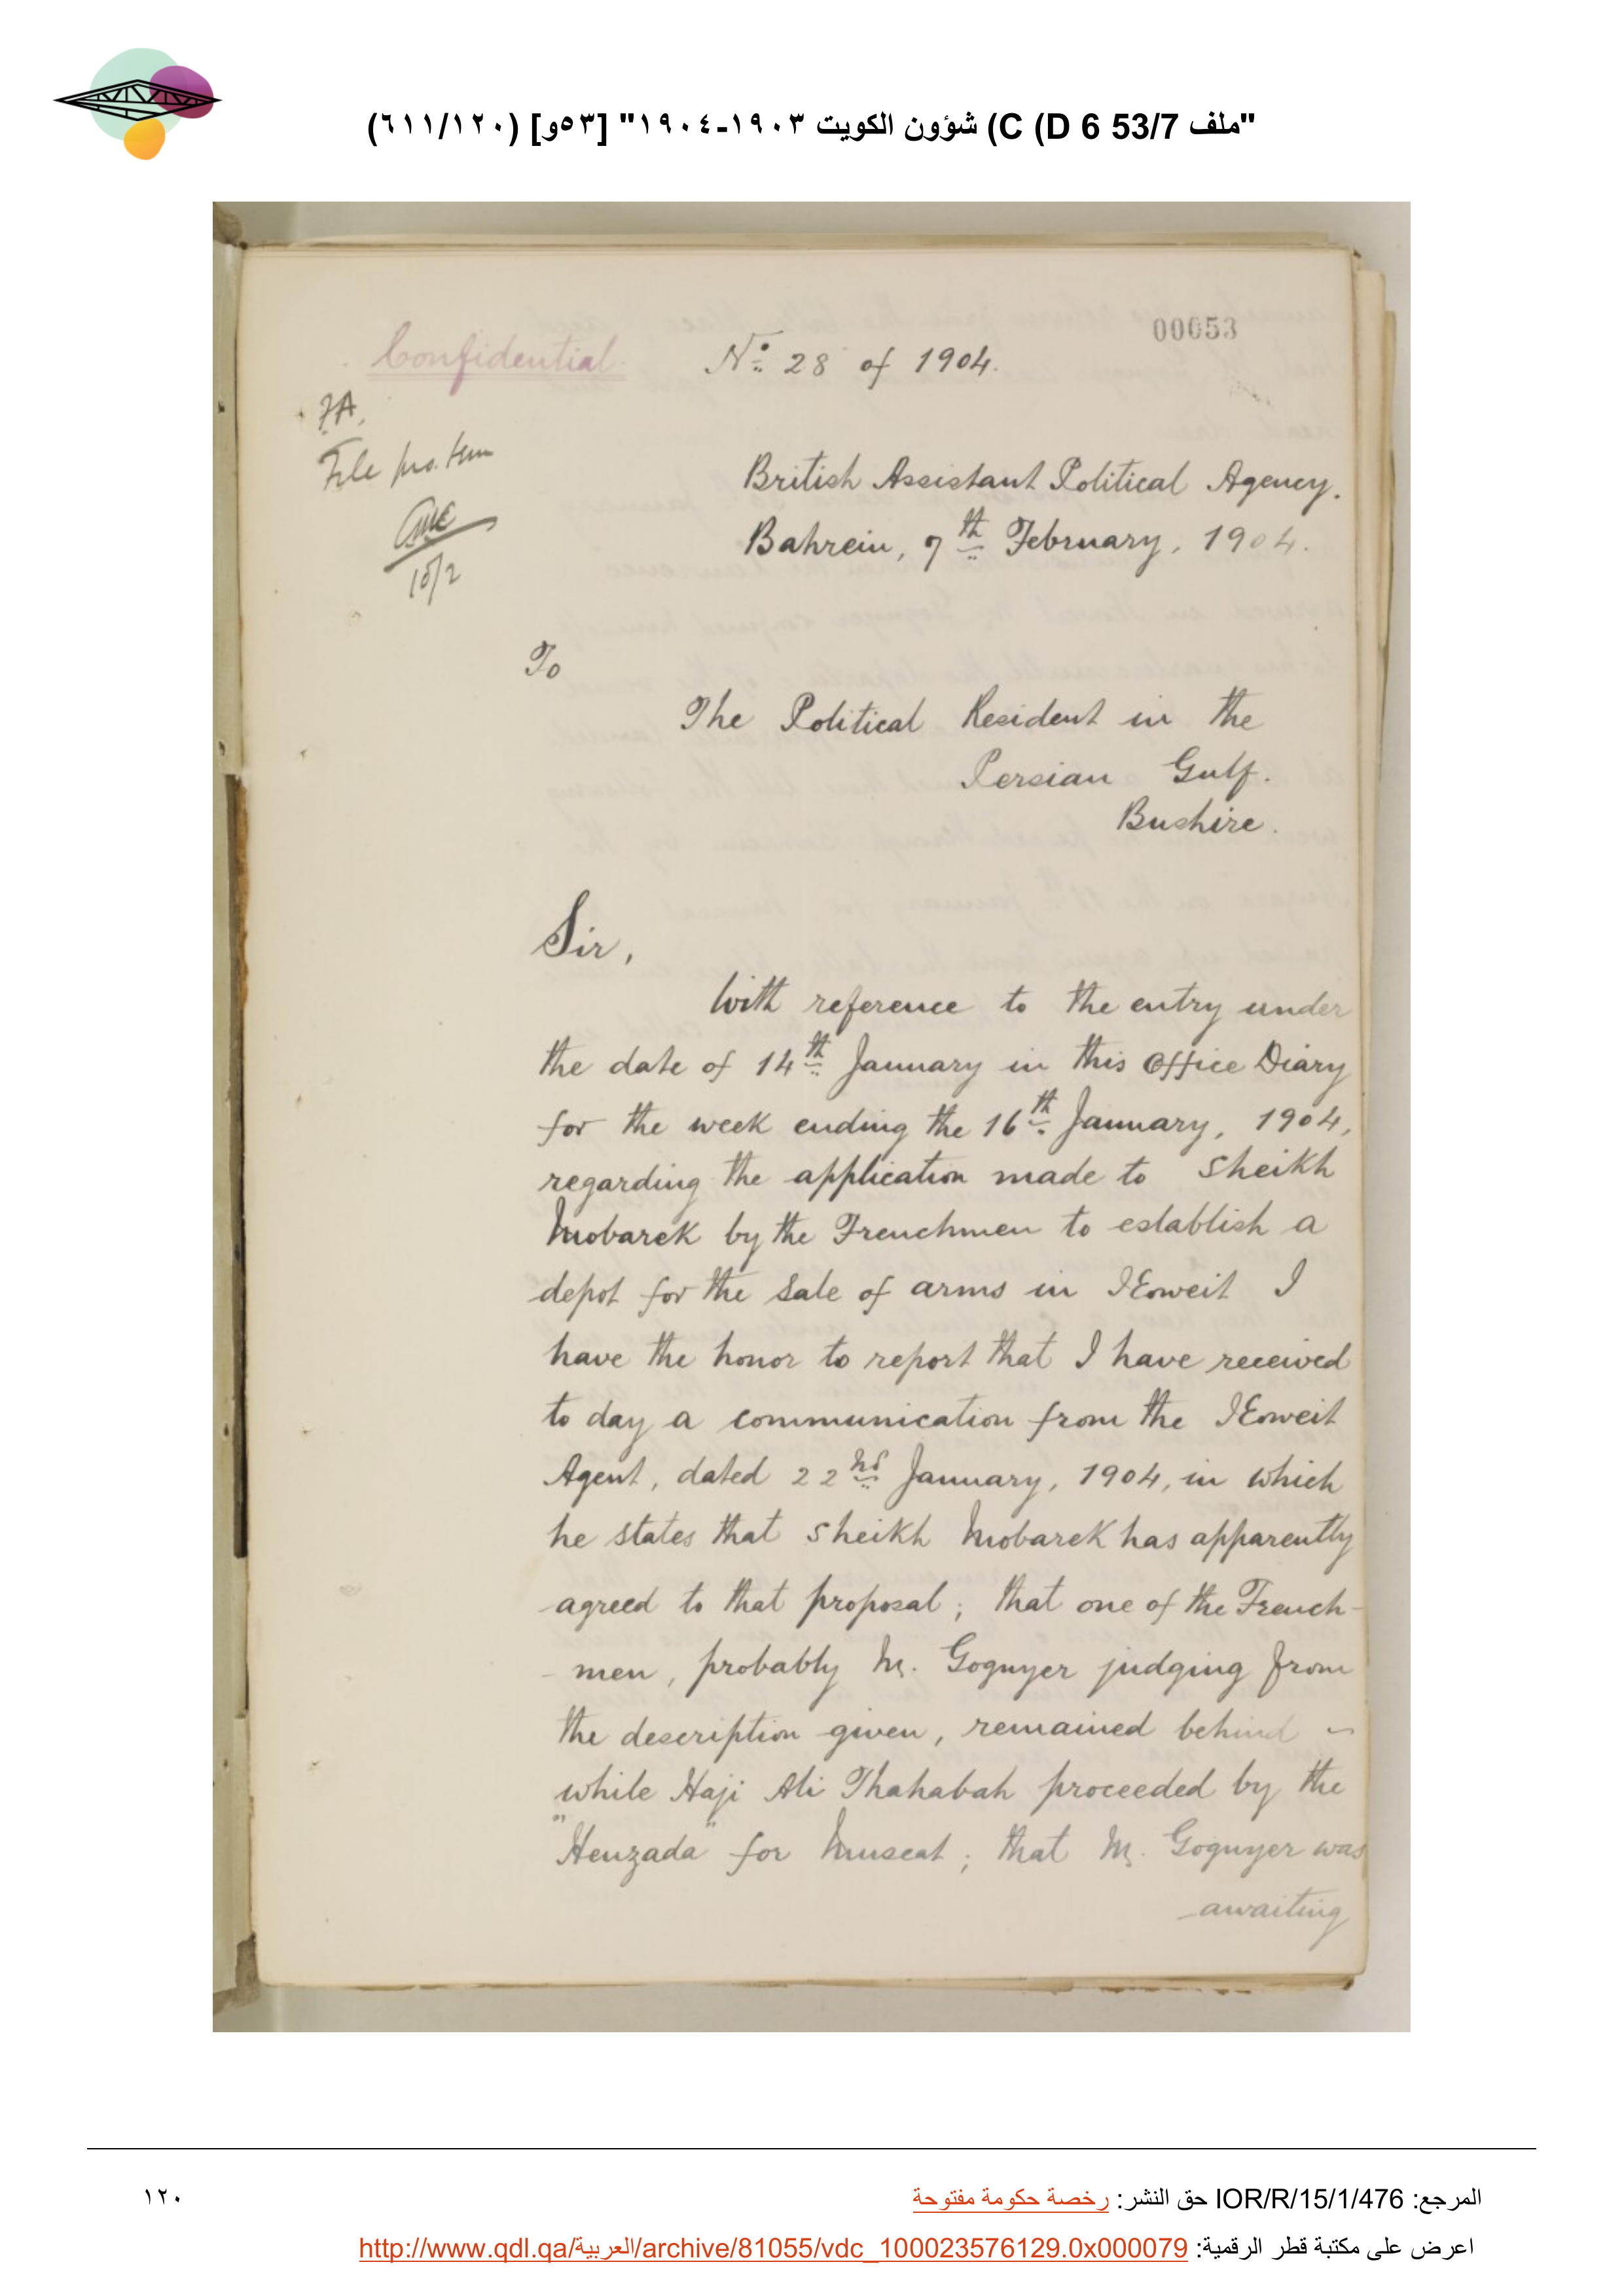 "ملف 53/7 C (D 6) شؤون الكويت ١٩٠٣-١٩٠٤" [٥٣و] (٦١١/١٢٠)
00053
Confidential
No. 28 of 1904.
FA.
File pro. tem
10/2
British Assistant Political Agency.
Bahrein, 7th February, 1904.
To
The Political Resident in the
Persian Gulf.
Bushire.
Sir,
With reference to the entry under
the date of 14th January in this Office Diary
for the week ending the 16th January, 1904,
regarding the application made to Sheikh
Mobarek by the Frenchmen to establish a
depot for the sale of arms in Koweit I
have the honor to report that I have received
to day a communication from the Koweit
Agent, dated 22nd January, 1904, in which
he states that Sheikh Mobarek has apparently
agreed to that proposal; that one of the French-
men, probably M. Goguyer judging from
the description given, remained behind
while Haji Ali Thahabah proceeded by the
"Henzada" for Muscat; that M. Goguyer was
awaiting
المرجع: IOR/R/15/1/476 حق النشر: رخصة حكومة مفتوحة
١٢٠
اعرض على مكتبة قطر الرقمية: http://www.qdl.qa/العربية/archive/81055/vdc_100023576129.0x000079